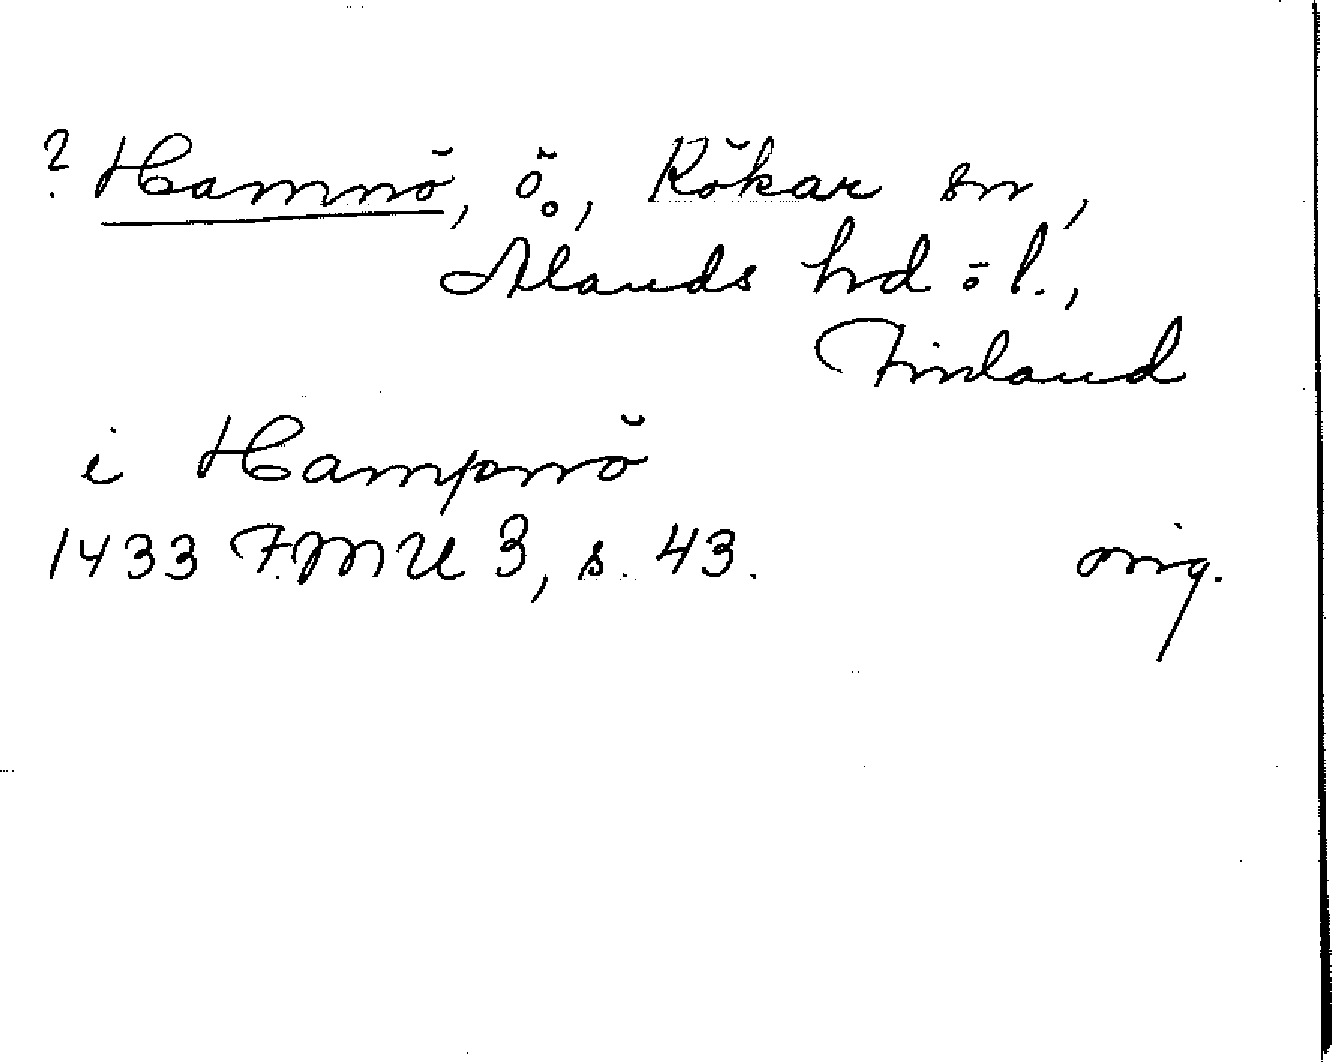 ? Hamnö, ö., Kökar sn,
Ålands hd ö l.,
Finland
i Hampnö
1433 FMU 3, s. 43. orig.